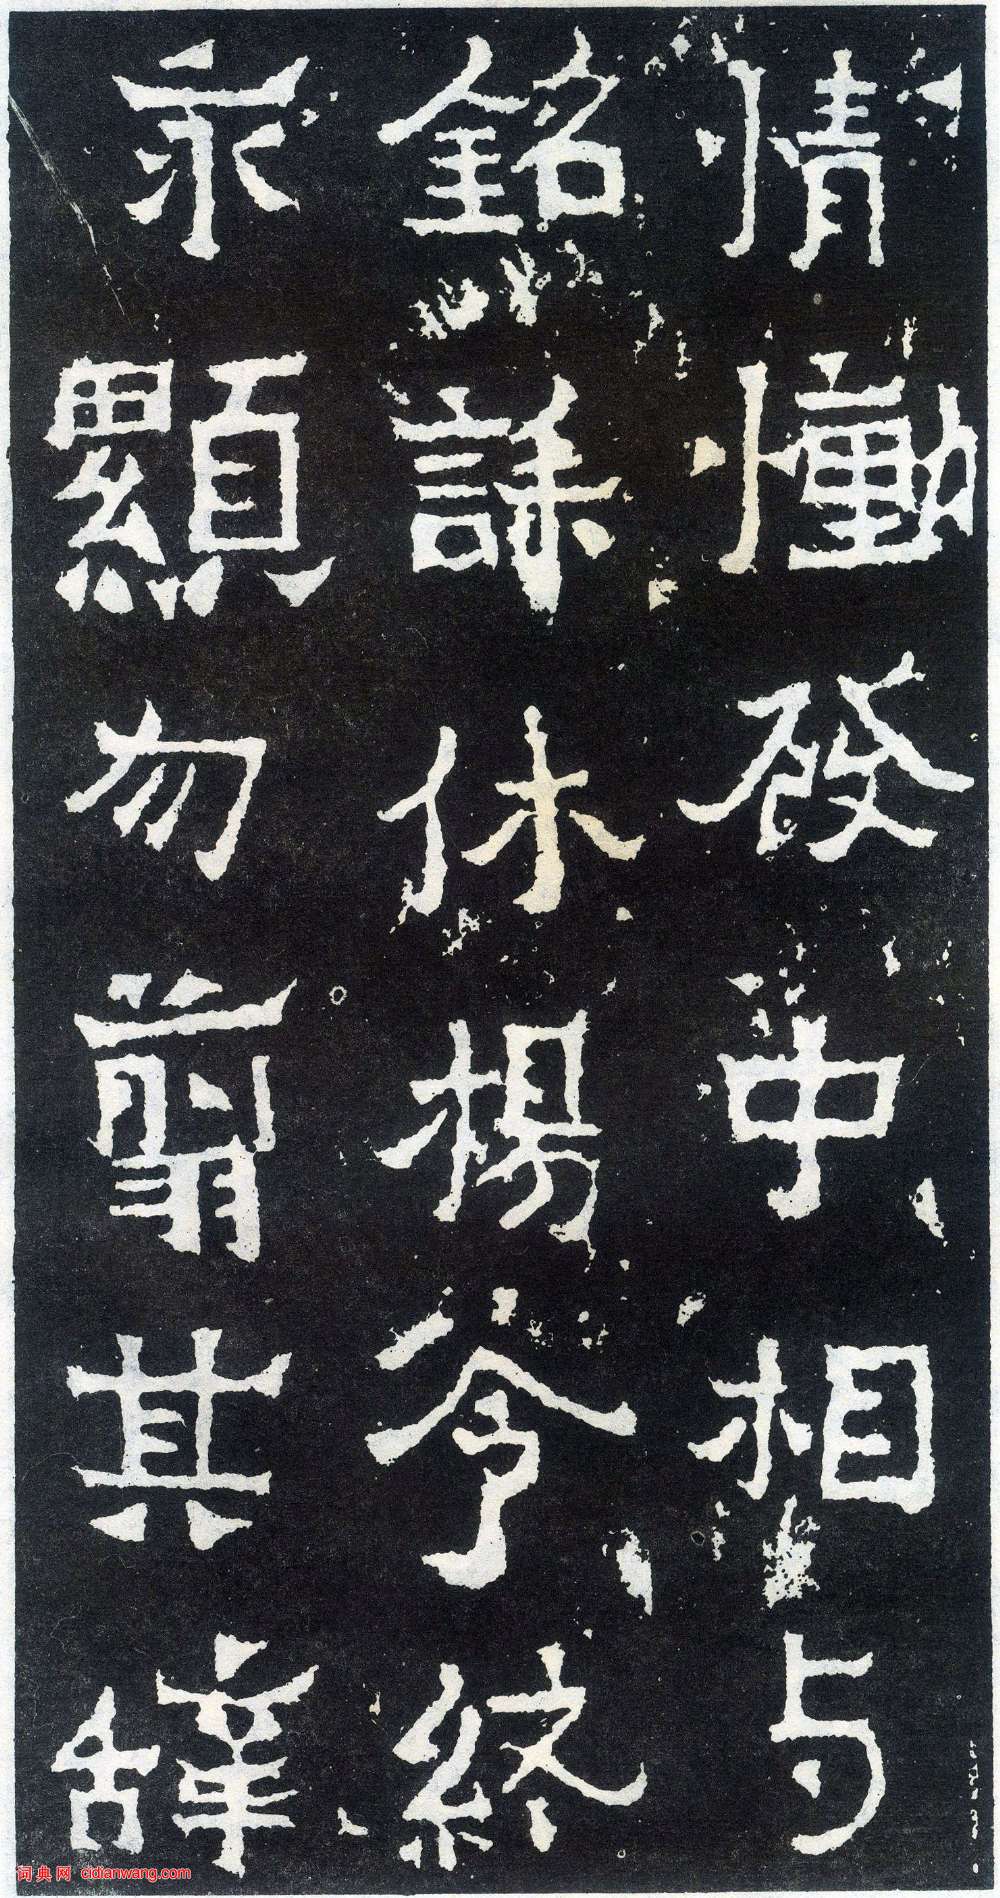 情慟發中相与
銘誄休揚令終
永顯勿翦其辞
词典网 cidianwang.com